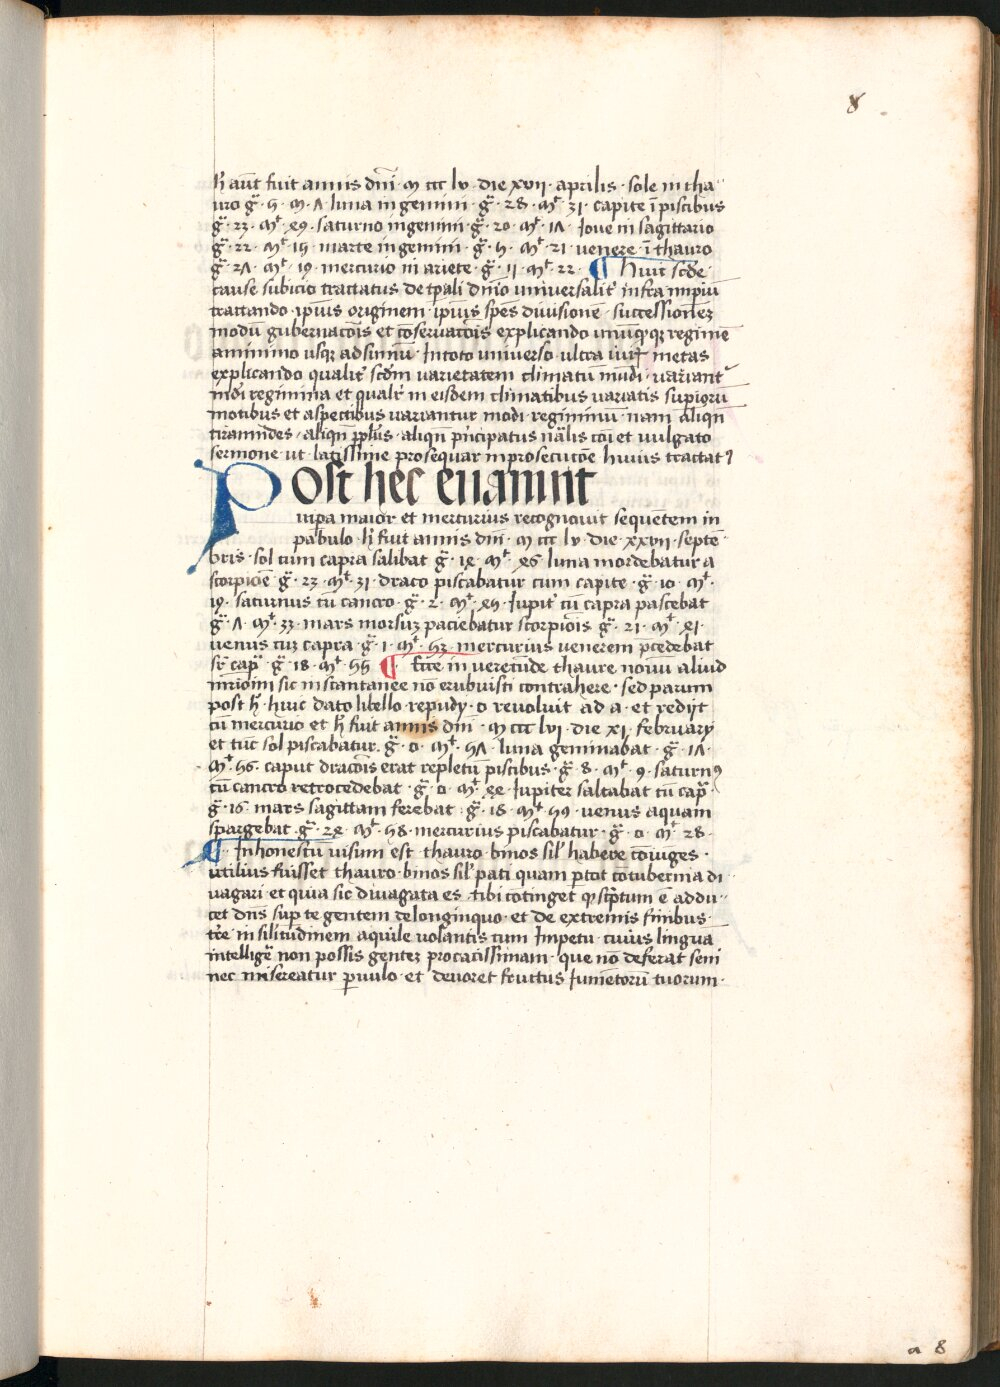 8
h̄ aūt fuit annis dn̄i · m ccc lv · die xvii · aprilis · sole in tha
uro g̃ · 5 · m · Λ luna in gemini · g̃ · 28 · mt · 31 · capite ī piscibus
g̃ · 23 · mt · ꝝ9 · saturno in gemini · g̃ · 20 · mt · 1Λ · Ioue in sagittario
g̃ · 22 · mt · 15 · marte in gemini · g̃ · 5 · mt · 21 venere · ī thauro
g̃ · 2Λ · mt · 19 · mercurio in ariete · g̃ · 11 · mt · 22 · ¶ huic scd̄e
cause subicio tractatus de tꝑali dn̄io uniuersalit̓ infra
tractando · ipius originem · ipius spēs diuisione · successionez
modū gubernatōis et cōseruatōis explicando unūqꝫqꝫ regimē
a minimo usqꝫ ad sūmū · In toto uniuerso · ultra metas
explicando qualit̓ scdm varietatem climatū mūdi · variant̓
mūdi regimina et qualr̄ in eisdem climatibus variatis supiorū
motibus et aspectibus uariantur modi regiminū nam aliqn̄
tirannides · aliqn̄ pplūs · aliqn̄ pncipatus nālis cōi et uulgato
sermone ut latissime prosequar in prosecutōe huius tractat9
Post hec euanuit
uipa maior et mercurius recognouit sequētem in
pabulo · h̄ fuit annis dn̄i · m ccc lv · die xxvii · septē
bris · sol cum capra saliebat g̃ · 1ꝝ · mt · ꝝ6 · luna mordebatur a
scorpiōe g̃ · 23 · mt · 31 · draco piscabatur cum capite · g̃ · 10 · mt ·
19 · saturnus cū cancro · g̃ · 2 · mt · ꝝ5 · Iupit̓ cū capra pascebat
g̃ · Λ · mt · 33 · mars morsuz paciebatur scorpiōis g̃ · 21 · mt · ꝝ1 ·
uenus cuz capra · g̃ · 1 · mt · 53 · mercurius venerem p̄cedebat
sr̄ cap̄ · g̃ · 18 · mt · 55 ¶ Ecce in verecūde thaure nouū aliud
mr̄iōm sic instantanee nō erubuisti contrahere · sed parum
post h̄ · huic dato libello · repudy · o reuoluit ad a · et redijt
cū mercurio et h̄ fuit annis dn̄i · m ccc lvi · die xi · february
et tūc sol piscabatur · g̃ · 0 · mt · 5Λ · luna geminabat · g̃ · 1Λ ·
mt · 56 · caput dracōis erat repletū piscibus · g̃ · 8 · mt · 9 · saturn9
cū cancro retrocedebat · g̃ · 0 · mt · ꝝꝝ · Iupiter saltabat cū cap̄ ·
g̃ · 16 · mars sagittam ferebat · g̃ · 18 · mt · 59 · venus aquam
spargebat · g̃ · 2ꝝ · mt · 58 · mercurius piscabatur · g̃ · 0 · mt · 28 ·
¶ Inhonestū visum est · thauro · binos sil̓ habere cōiuges ·
utilius fuisset thauro · binos sil̓ pati quam ꝑ tot cōtubernia di
uagari · et quia sic diuagata es · tibi cōtinget ꝙ scptum ē addu ·
cet dn̄s sup te gentem de longinquo · et de extremis finibus ·
tr̄e in silitudinem aquile uolantis cum Impetu · cuius lingua
intelligē non possis gentez procacissimam · que nō deferat seni
nec misereatur puulo · et deuoret fructus Iumētorū tuorum ·
a 8